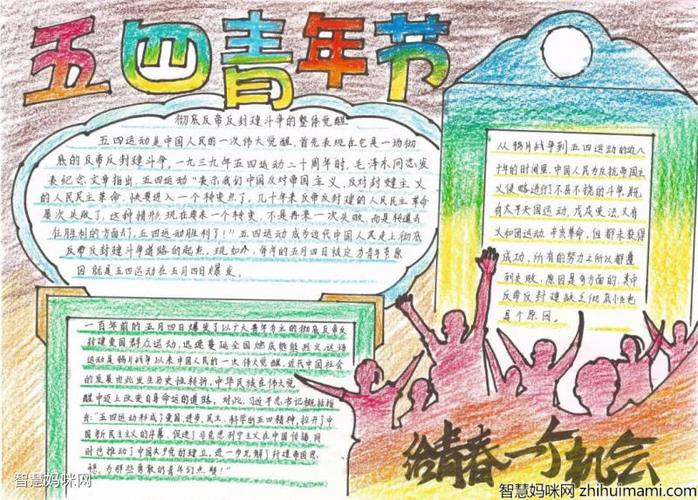 五四青年节
彻底反帝反封建斗争的整体觉醒
五四运动是中国人民的一次伟大觉醒,首先表现在它是一场彻
底的反帝反封建斗争。一九三九年五四运动二十周年时,毛泽东同志发
表纪念文章指出,五四运动"表示我们中国反对帝国主义、反对封建主义
的人民民主革命,快要进入一个转变点了。几十年来反帝反封建的人民民主革命
屡次失败了,这种情形,现在应来一个转变,不是再来一次失败,而是转到
任胜利的方面了,五四运动胜利了!"五四运动成为近代中国人民走上彻底
反帝反封建斗争道路的起点。现如今,每年的五月四日被定为青年节原
因就是五四运动在五月四日爆发。
从鸦片战争到五四运动的近八
十年的时间里,中国人民为反抗帝国主
义侵略进行了不屈不挠的斗争,既
有太平天国运动,戊戌变法,又有
义和团运动、辛亥革命,但都未获得
成功,所有的努力上所以都遭
到失败,原因是多方面的,其中
反帝反封建缺乏彻底性也是
个原因。
一百年前的五月四日爆发了以广大青年为主的彻底反帝反
封建爱国群众运动,迅速蔓延全国燃成熊熊烈火。这场
运动是鸦片战争以来中国人民的一次伟大觉醒,近代中国社会
的发展由此发生历史性转折,中华民族在伟大觉
醒中迈上改变自身命运的道路。对此,习近平总书记概括指
出:"五四运动形成了爱国、进步、民主、科学的五四精神,拉开了中
国新民主主义的序幕,促进了马克思列宁主义在中国传播,同
时也推动了中国共产党的建立,进一步瓦解了封建帝国思
想,为那些勇敢的青年们点赞!"
给青春一个机会
智慧妈咪网
智慧妈咪网 zhihuimami.com